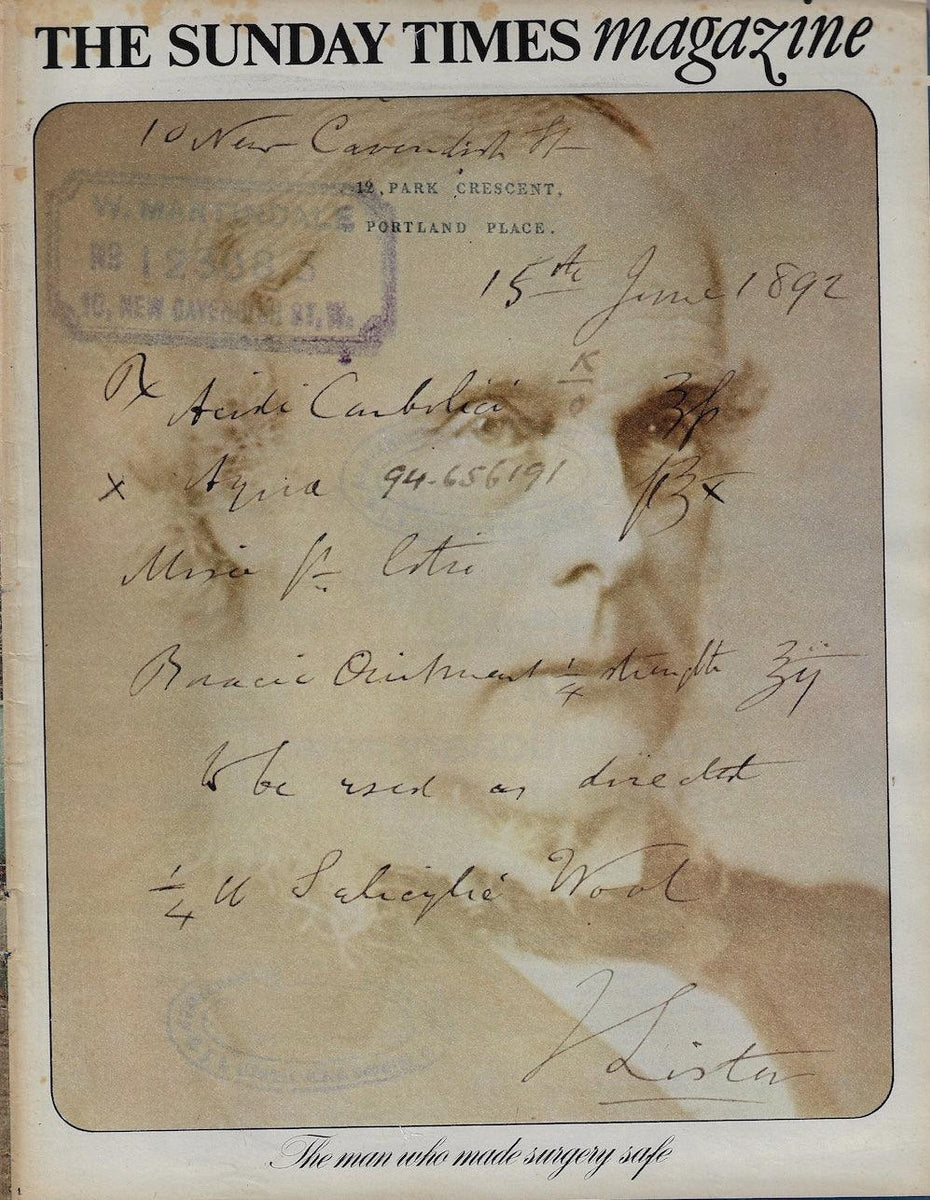 THE SUNDAY TIMES magazine
10 New Cavendish St
12, PARK CRESCENT,
PORTLAND PLACE.
W. MARTINDALE
10, NEW CAVENDISH ST, W.
15th June 1892
℞ Acidi Carbolici
x Aqua 94-656191
Boracic Ointment 1/4 strength ʒij
to be used as directed
1/4 lb Salicylic Wool
J Lister
The man who made surgery safe
1